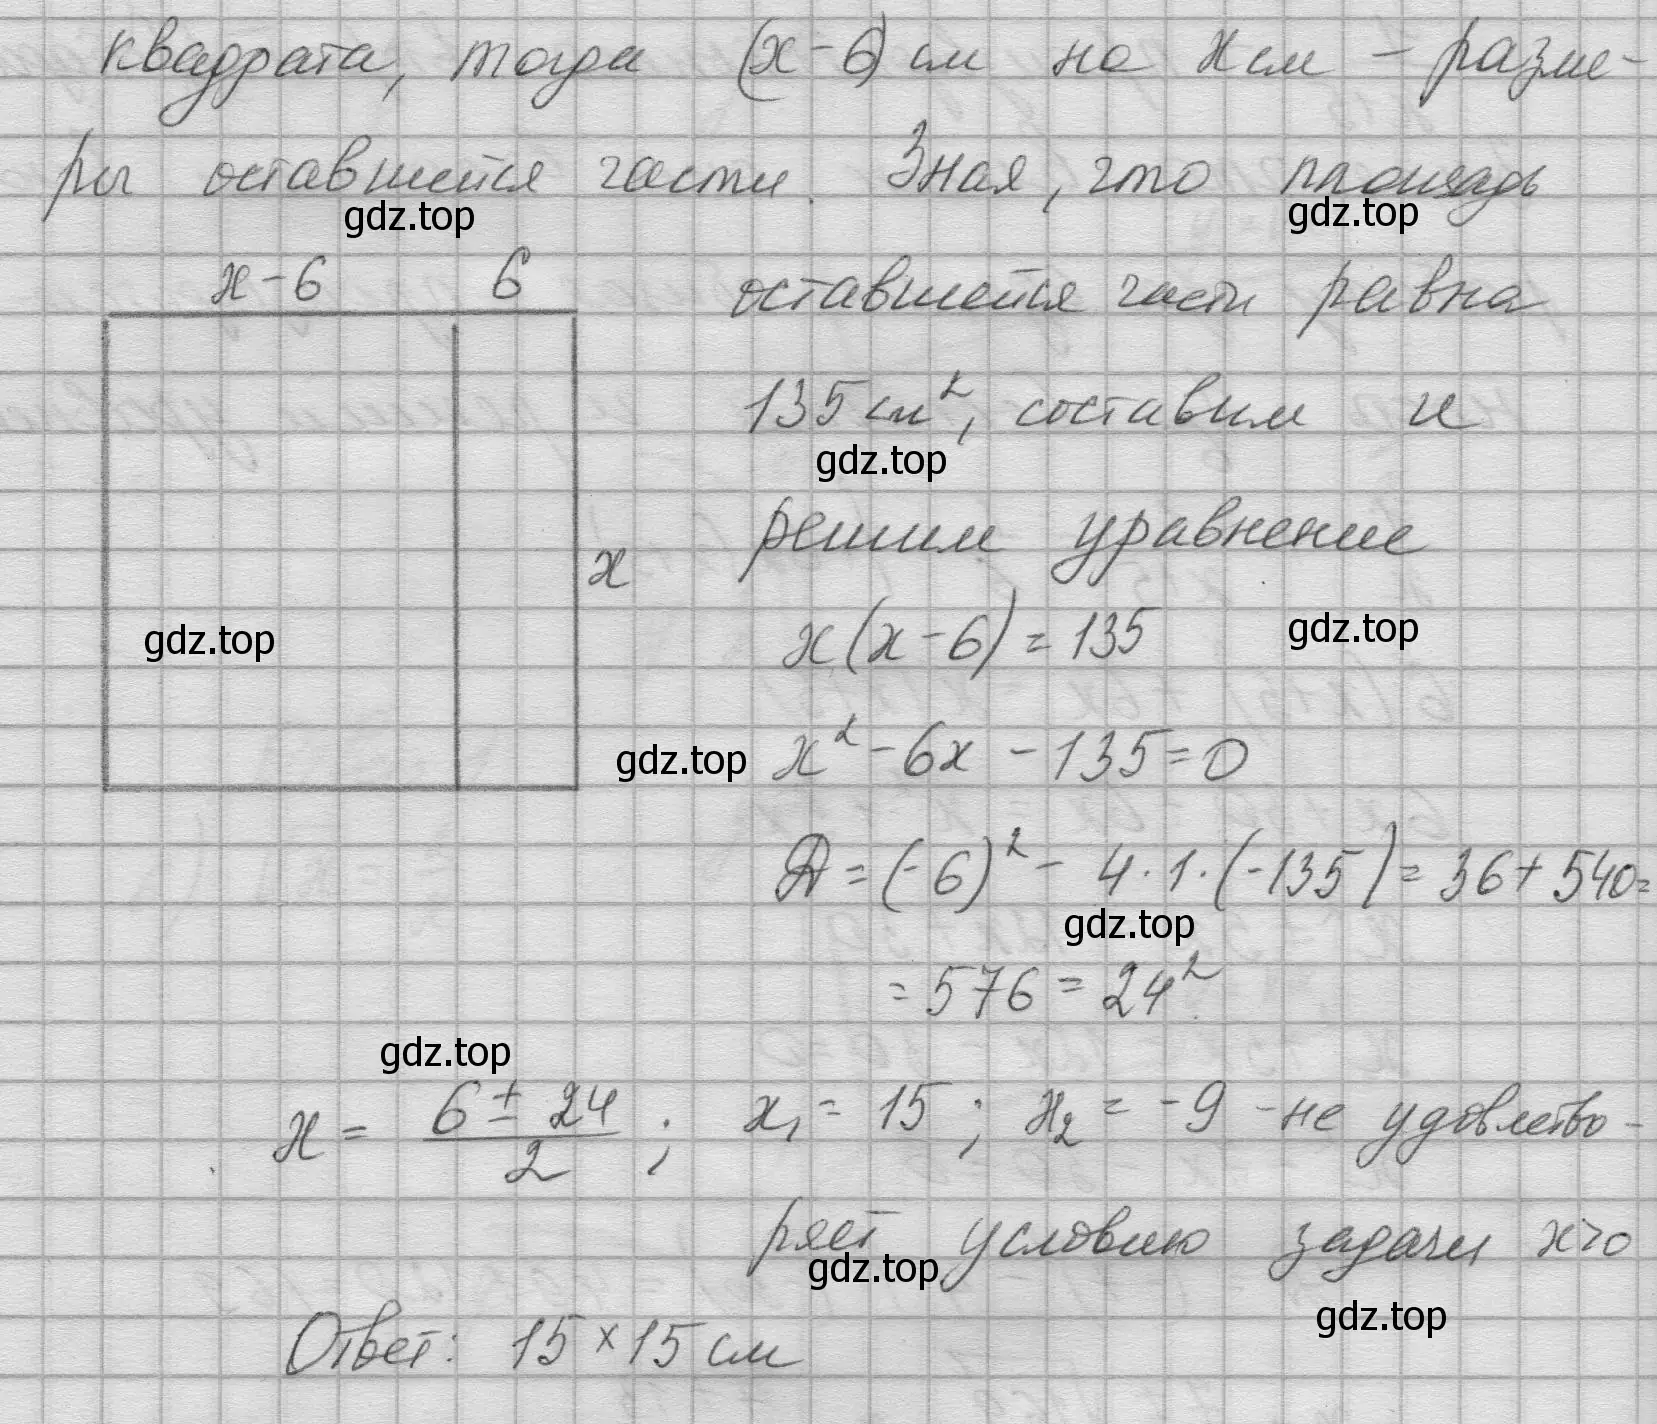 квадрата, тогда (x-6) см на x см – разме-
ры оставшейся части. Зная, что площадь
gdz.top
gdz.top
x-6 6
оставшейся части равна
135 см², составим и
gdz.top
решим уравнение
x
x(x-6)=135
gdz.top
gdz.top
x²-6x-135=0
gdz.top
Д=(-6)²-4·1·(-135)=36+540=
gdz.top
=576=24²
gdz.top
x = (6±24)/2; x₁=15; x₂=-9 -не удовлетво-
ряет условию задачи x>0
gdz.top
gdz.top
Ответ: 15×15 см